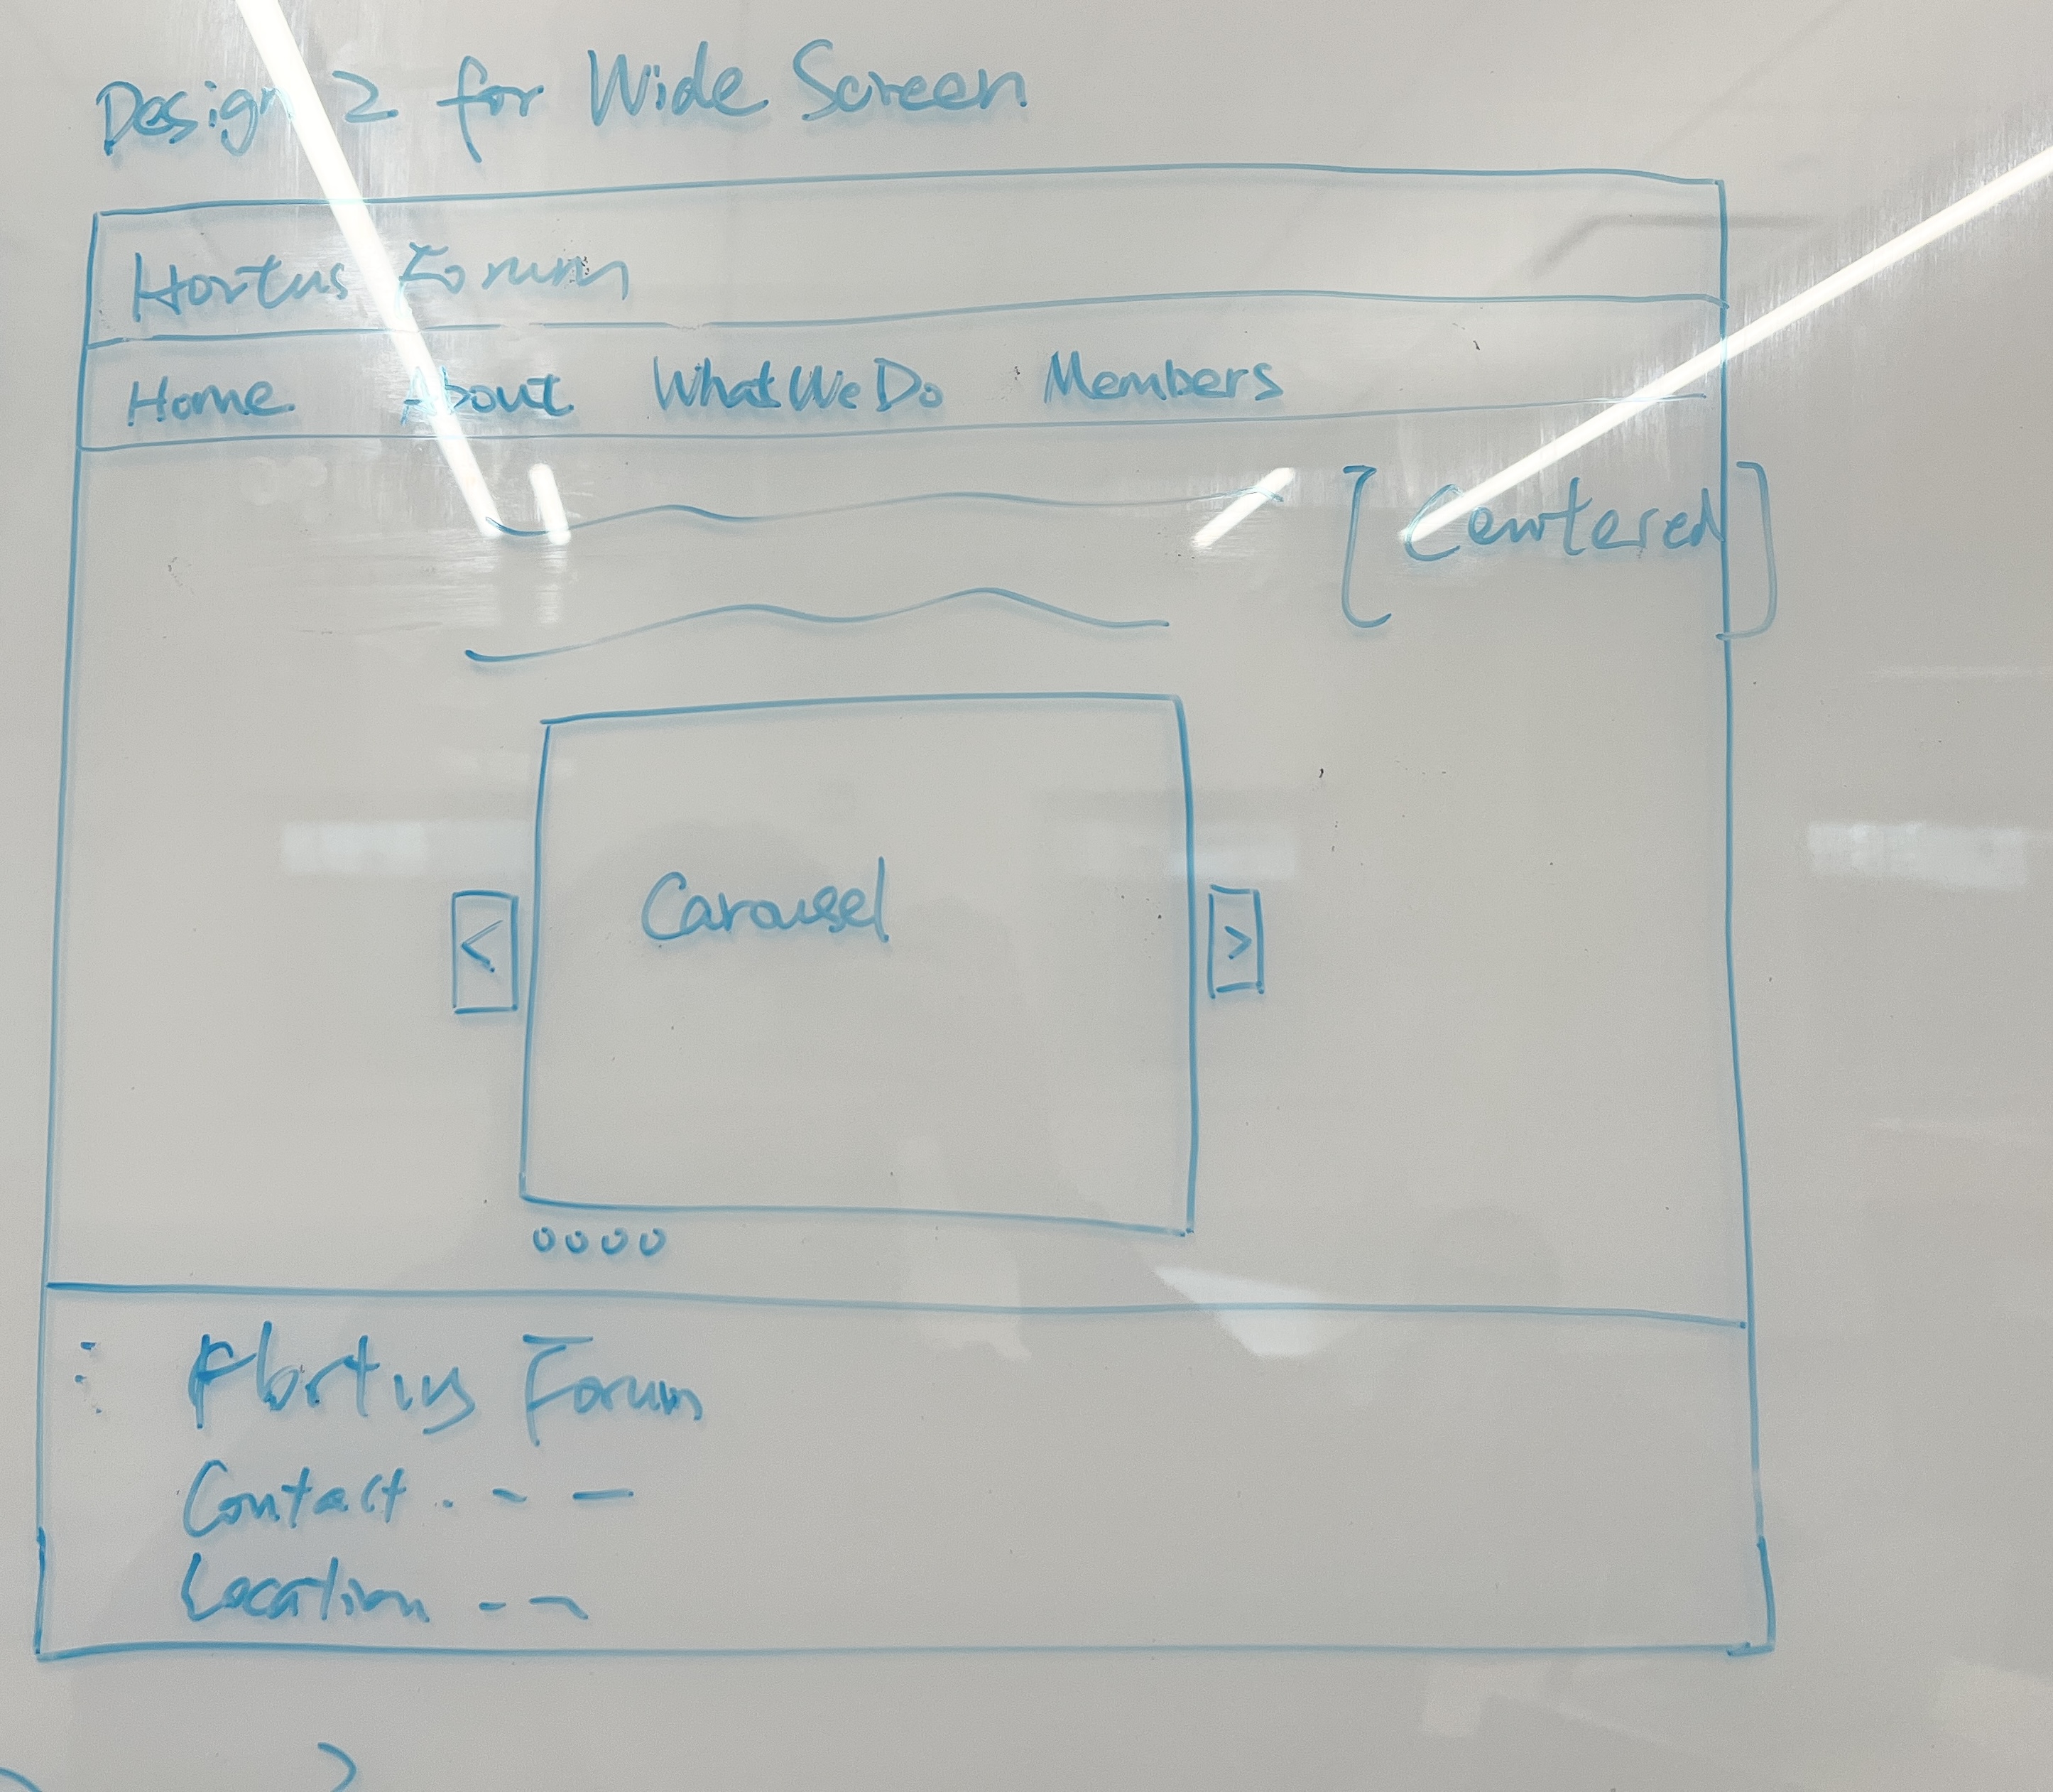 Design 2 for Wide Screen
Hortus Forum
Home About What We Do Members
[Centered]
Carousel
<
>
Hortus Forum
Contact . - -
Location - -